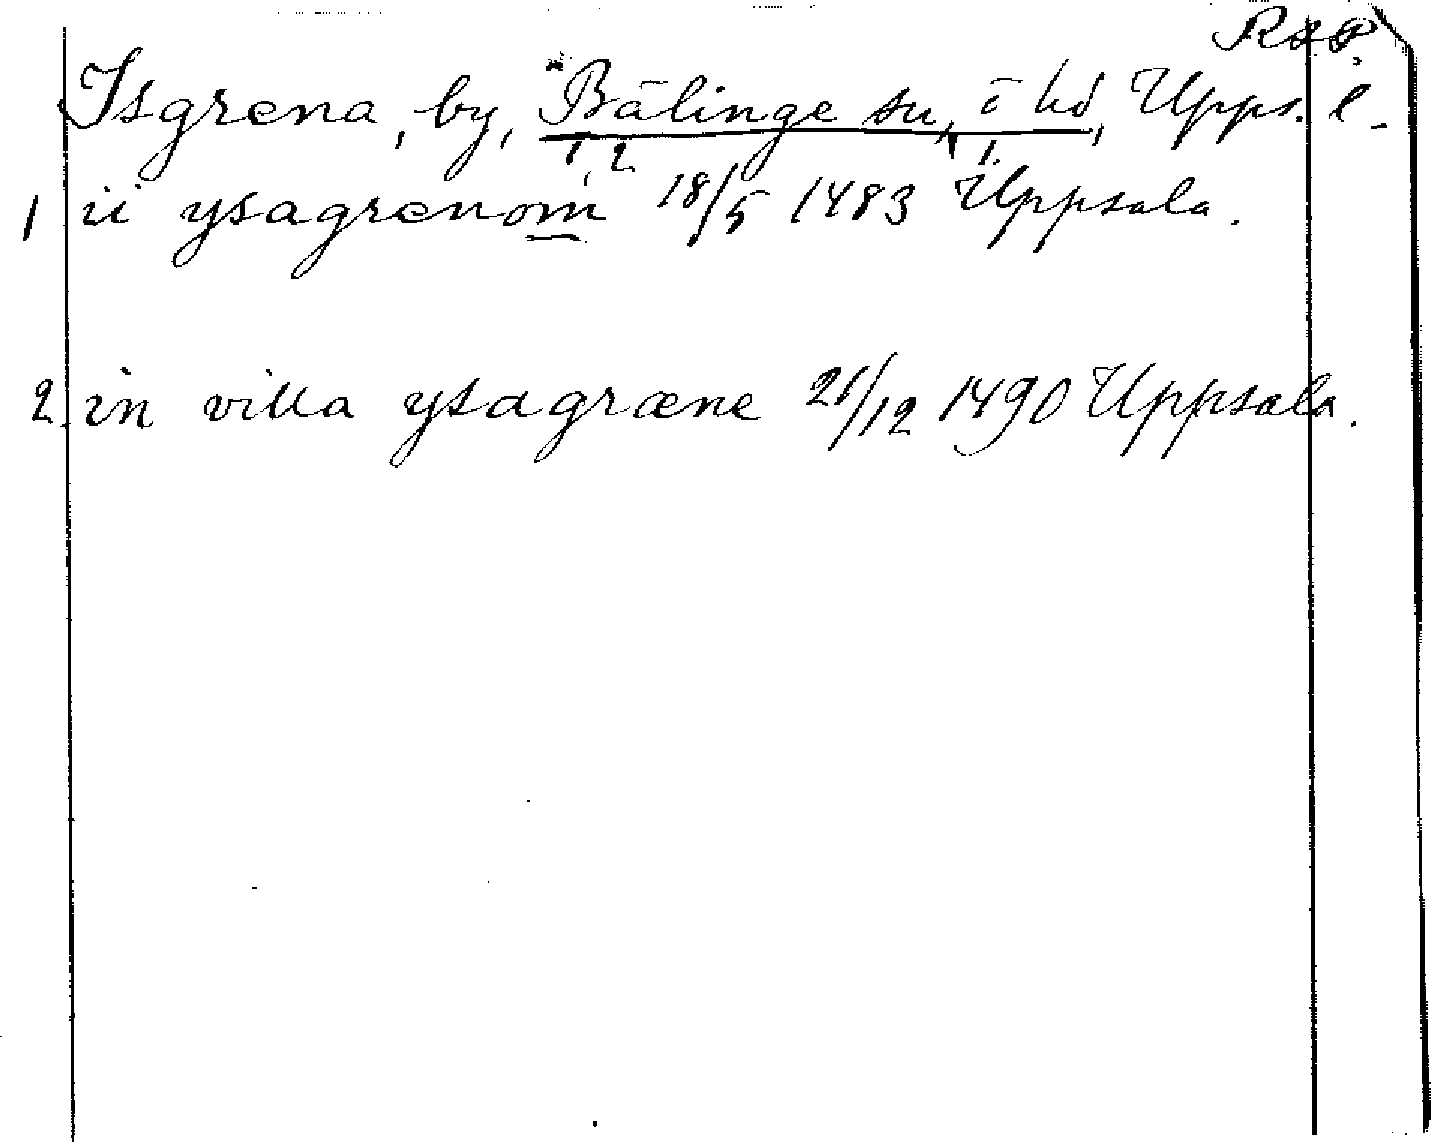 RAP
Isgrena, by, Bälinge sn, o hd, Upps. l.
1, 2 1.
1 ii ysagrenom 18/5 1483 Uppsala.
2 in villa ysagræne 21/12 1490 Uppsala.